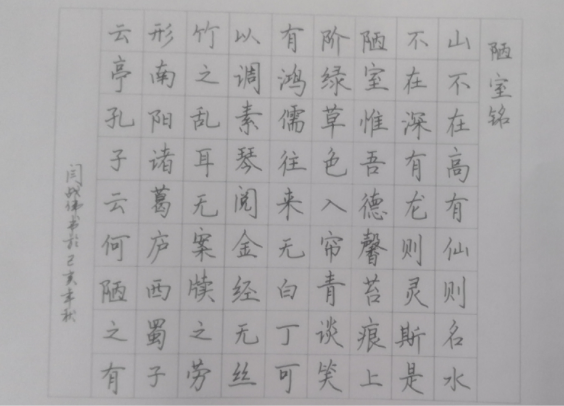 陋室铭
山不在高有仙则名水
不在深有龙则灵斯是
陋室惟吾德馨苔痕上
阶绿草色入帘青谈笑
有鸿儒往来无白丁可
以调素琴阅金经无丝
竹之乱耳无案牍之劳
形南阳诸葛庐西蜀子
云亭孔子云何陋之有
书于己亥年秋